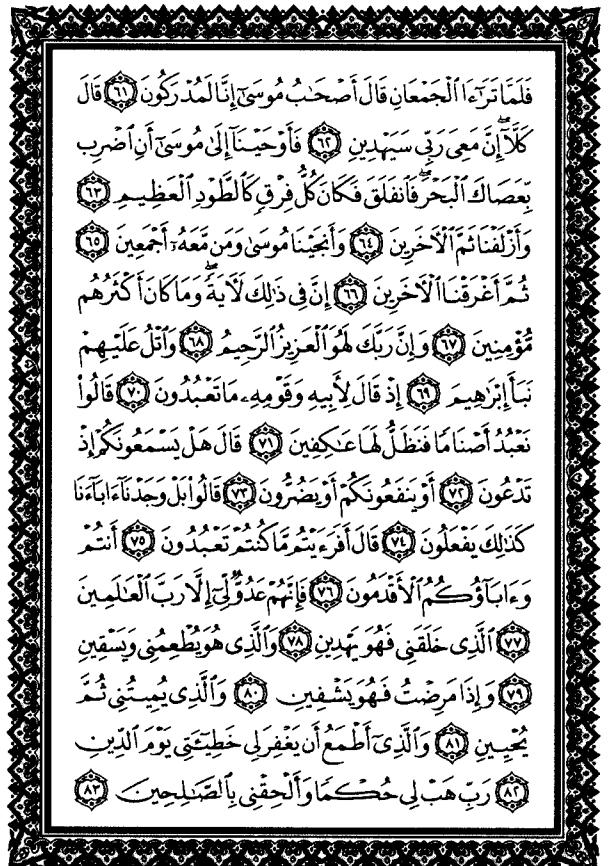 فَلَمَّا تَرَٰٓءَا ٱلْجَمْعَانِ قَالَ أَصْحَٰبُ مُوسَىٰٓ إِنَّا لَمُدْرَكُونَ ٦١ قَالَ
كَلَّآ ۖ إِنَّ مَعِىَ رَبِّى سَيَهْدِينِ ٦٢ فَأَوْحَيْنَآ إِلَىٰ مُوسَىٰٓ أَنِ ٱضْرِب
بِّعَصَاكَ ٱلْبَحْرَ ۖ فَٱنفَلَقَ فَكَانَ كُلُّ فِرْقٍ كَٱلطَّوْدِ ٱلْعَظِيمِ ٦٣
وَأَزْلَفْنَا ثَمَّ ٱلْأَخَرِينَ ٦٤ وَأَنجَيْنَا مُوسَىٰ وَمَن مَّعَهُۥٓ أَجْمَعِينَ ٦٥
ثُمَّ أَغْرَقْنَا ٱلْأَخَرِينَ ٦٦ إِنَّ فِى ذَٰلِكَ لَأَيَةً ۖ وَمَا كَانَ أَكْثَرُهُم
مُّؤْمِنِينَ ٦٧ وَإِنَّ رَبَّكَ لَهُوَ ٱلْعَزِيزُ ٱلرَّحِيمُ ٦٨ وَٱتْلُ عَلَيْهِمْ
نَبَأَ إِبْرَٰهِيمَ ٦٩ إِذْ قَالَ لِأَبِيهِ وَقَوْمِهِۦ مَا تَعْبُدُونَ ٧٠ قَالُوا۟
نَعْبُدُ أَصْنَامًا فَنَظَلُّ لَهَا عَٰكِفِينَ ٧١ قَالَ هَلْ يَسْمَعُونَكُمْ إِذْ
تَدْعُونَ ٧٢ أَوْ يَنفَعُونَكُمْ أَوْ يَضُرُّونَ ٧٣ قَالُوا۟ بَلْ وَجَدْنَآ ءَابَآءَنَا
كَذَٰلِكَ يَفْعَلُونَ ٧٤ قَالَ أَفَرَءَيْتُم مَّا كُنتُمْ تَعْبُدُونَ ٧٥ أَنتُمْ
وَءَابَآؤُكُمُ ٱلْأَقْدَمُونَ ٧٦ فَإِنَّهُمْ عَدُوٌّ لِّىٓ إِلَّا رَبَّ ٱلْعَٰلَمِينَ
٧٧ ٱلَّذِى خَلَقَنِى فَهُوَ يَهْدِينِ ٧٨ وَٱلَّذِى هُوَ يُطْعِمُنِى وَيَسْقِينِ
٧٩ وَإِذَا مَرِضْتُ فَهُوَ يَشْفِينِ ٨٠ وَٱلَّذِى يُمِيتُنِى ثُمَّ
يُحْيِينِ ٨١ وَٱلَّذِىٓ أَطْمَعُ أَن يَغْفِرَ لِى خَطِيٓـَٔتِى يَوْمَ ٱلدِّينِ
٨٢ رَبِّ هَبْ لِى حُكْمًا وَأَلْحِقْنِى بِٱلصَّٰلِحِينَ ٨٣